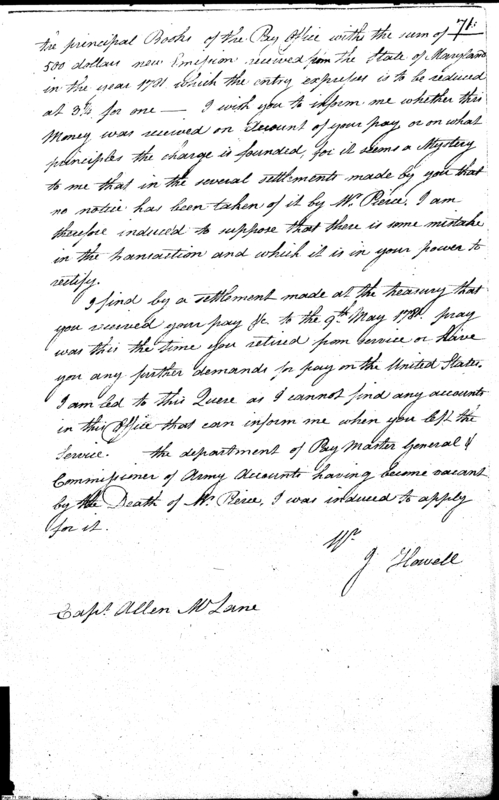 71.
the principal Books of the Pay Office with the sum of
500 dollars new Emission received from the State of Maryland
in the year 1781 which the entry expresses is to be reduced
at 3¾ for one — I wish you to inform me whether this
Money was received on Account of your pay or on what
principles the charge is founded, for it seems a Mystery
to me that in the several settlements made by you that
no notice has been taken of it by Mr. Pierce, I am
therefore induced to suppose that there is some mistake
in the transaction and which it is in your power to
rectify.
I find by a settlement made at the treasury that
you received your pay &c. to the 9th May 178 pray
was this the time you retired from service or Have
you any further demands for pay on the United States.
I am led to this Quere as I cannot find any accounts
in this Office that can inform me when you left the
Service. the department of Pay Master General &
Commissioner of Army Accounts having become vacant
by the Death of Mr. Pierce, I was induced to apply
for it.
J Howell
Capt. Allen McLane